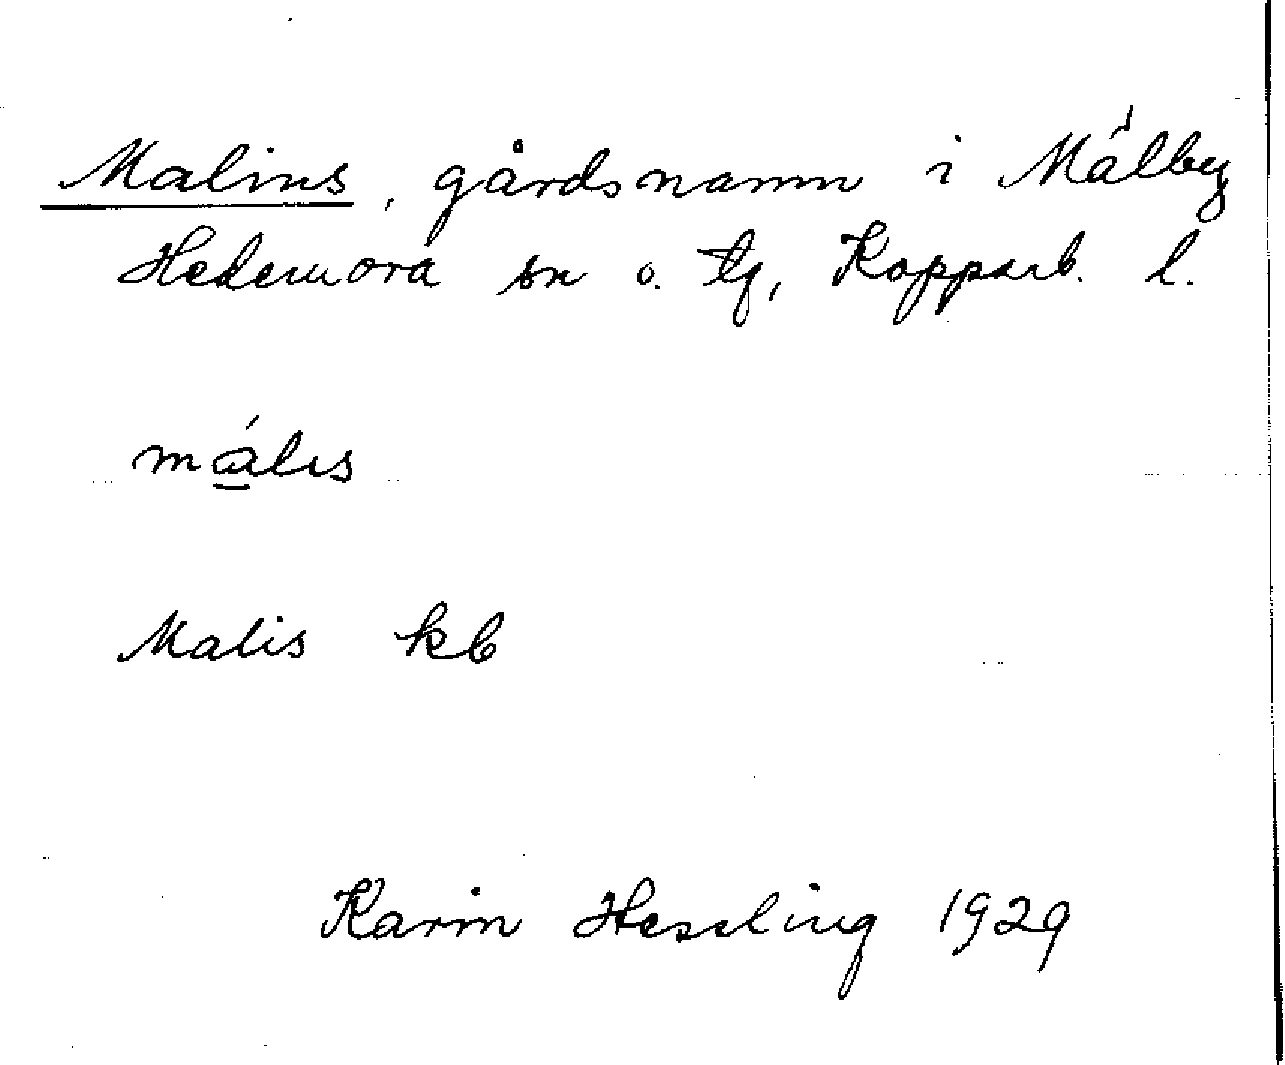 Malins, gårdsnamn i Målby
Hedemora sn o. tg, Kopparb. l.
mális
Malis kb
Karin Hessling 1929